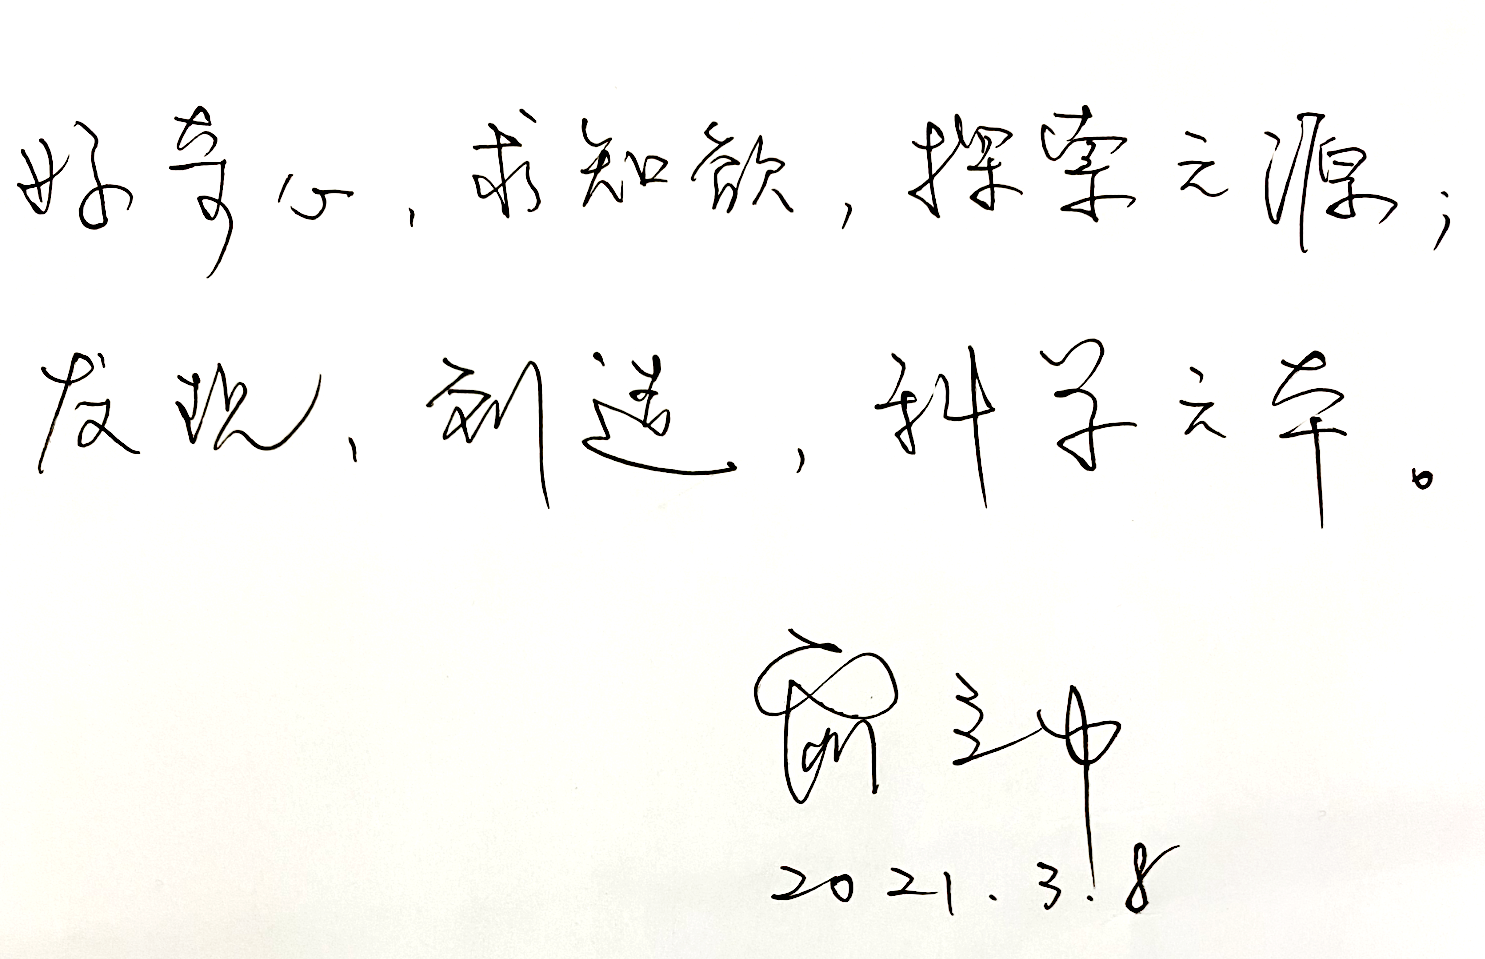 好奇心、求知欲，探索之源；
发现、创造，科学之本。
2021.3.8